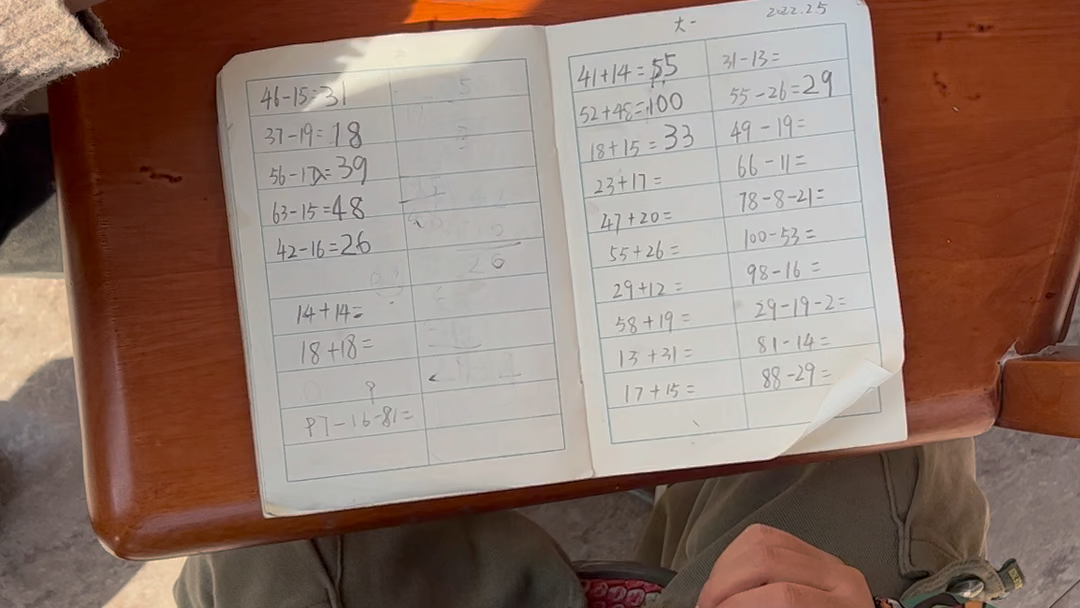 46-15=31
37-19=18
56-17=39
63-15=48
42-16=26
26
14+14=
18+18=
9
97-16-81=
大一
2022.2.5
41+14=55
52+48=100
18+15=33
23+17=
47+20=
55+26=
29+12=
58+19=
13+31=
17+15=
31-13=
55-26=29
49-19=
66-11=
78-8-21=
100-53=
98-16=
29-19-2=
81-14=
88-29=